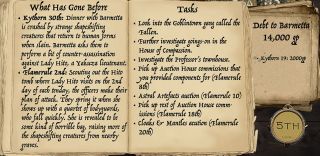 What Has Gone Before
• Kythorn 30th: Dinner with Barnetta
is crashed by strange shapeshifting
creatures that return to human forms
when slain. Barnetta asks them to
perform a bit of counter-assassination
against Lady Hito, a Yakuza lieutenant.
• Flamerule 2nd: Scouting out the Hito
tomb where Lady Hito visits on the 2nd
day of each tenday, the officers make their
plan of attack. They spring it when she
shows up with a quartet of bodyguards,
who fall quickly. She is revealed to be
some kind of horrible hag, raising more of
the shapeshifting creatures from nearby
graves.
Tasks
• Look into the Goblintown gang called the
Fallen.
• Further investigate goings-on in the
House of Compassion.
• Investigate the Professor's townhouse.
• Pick up Auction House commissions that
you provided components for (Flamerule
8th)
• Astral Artefacts auction (Flamerule 10)
• Pick up rest of Auction House comm-
issions (Flamerule 18th)
• Cloaks & Mantles auction (Flamerule
20th)
Debt to Barnetta
14,000 gp
- Kythorn 19: 2000gp
5TH